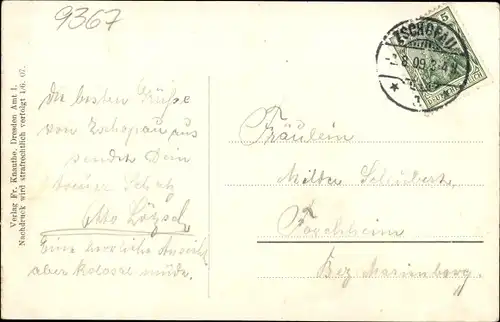 9367
ZSCHOPAU
8.09
5
Die besten Grüße
von Zschopau aus
sendet Dein
treuer Schatz
Otto
Eine herrliche Ansicht
aber kolossal müde.
Fräulein
Schubert
Forchheim
Bez Marienberg.
Verlag Fr. Knauthe, Dresden Amt I.
Nachdruck wird strafrechtlich verfolgt 1/6. 07.